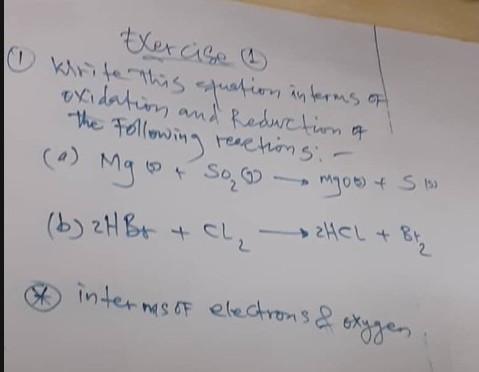 Exercise ①
① Write This equation interms of
oxidation and Reduction of
the Following reactions: -
(a) Mg(s) + SO₂(g) → MgO(s) + S(s)
(b) 2HBr + CL₂ → 2HCL + Br₂
* interms of electrons & oxygen.